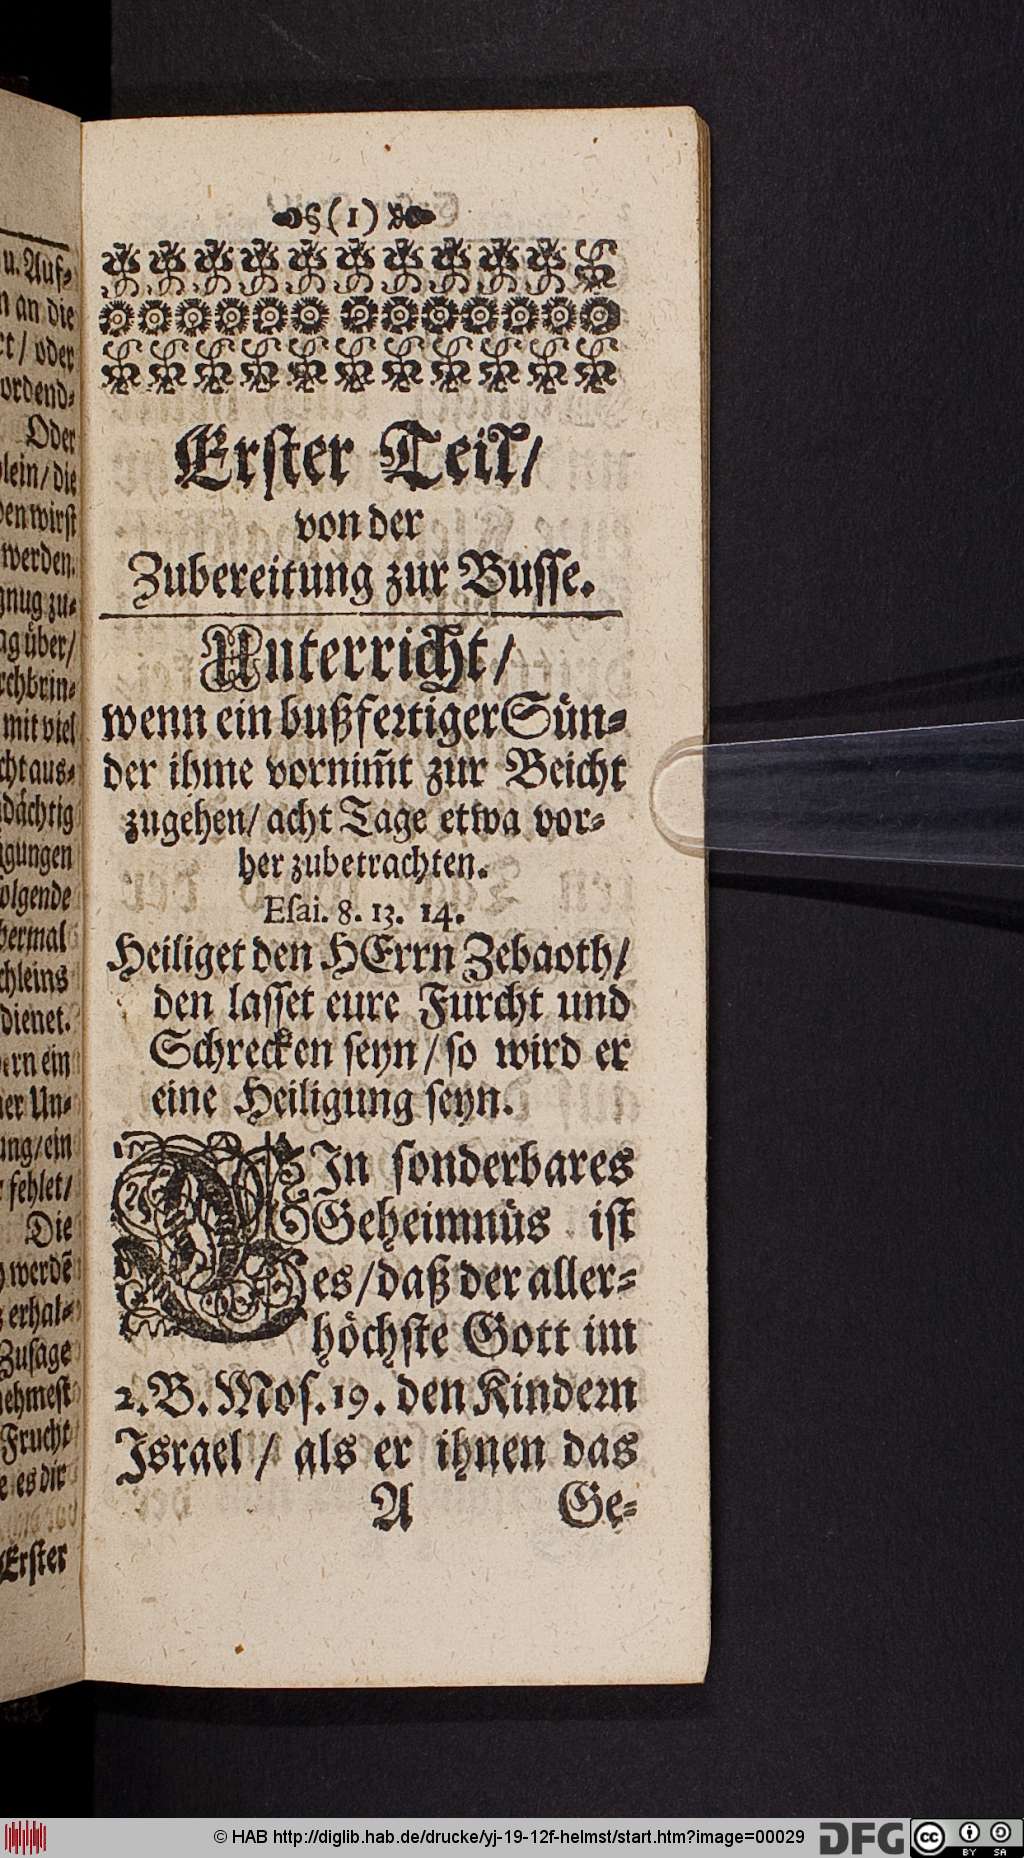 u. Auf-
n an die
et / oder
ordend-
Oder
lein / die
den wirst
werden.
gnug zu-
ag über /
rchbrin-
mit viel
cht aus-
dächtig
gungen
olgende
bermal
chleins
dienet.
ern ein
ner Un-
ung / ein
fehlet /
Die
werdē
erhal-
Zusage
nehmest
Frucht
e es dir
Erster
§ ( 1 )
Erster Teil /
von der
Zubereitung zur Busse.
Unterricht /
wenn ein bußfertiger Sün-
der ihme vornim̃t zur Beicht
zugehen / acht Tage etwa vor-
her zubetrachten.
Esai. 8. 13. 14.
Heiliget den HErrn Zebaoth /
den lasset eure Furcht und
Schrecken seyn / so wird er
eine Heiligung seyn.
EIn sonderbares
Geheimnüs ist
es / daß der aller-
höchste Gott im
2. B. Mos. 19. den Kindern
Israel / als er ihnen das
A Ge-
© HAB http://diglib.hab.de/drucke/yj-19-12f-helmst/start.htm?image=00029
DFG
cc
BY SA